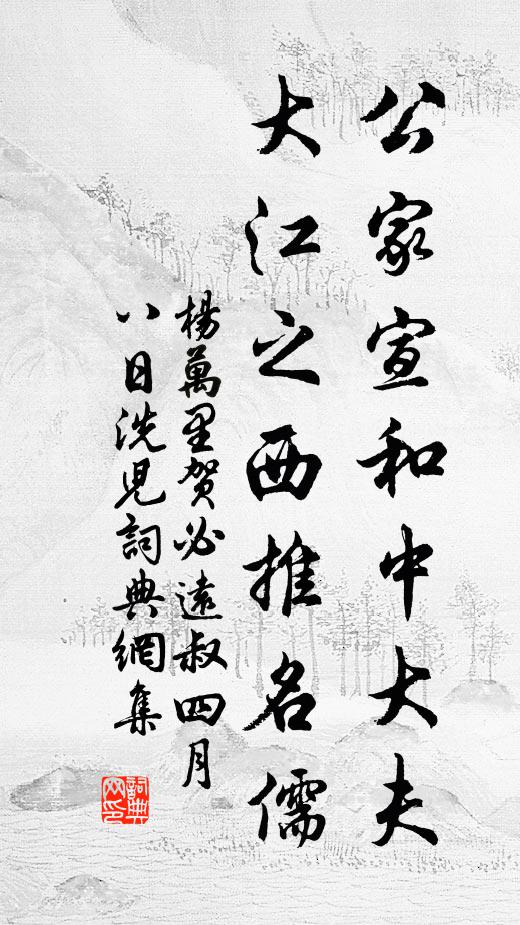 公家宣和中大夫
大江之西推名儒
楊萬里賀必遠叔四月
八日洗児詞典網集
詞典
网印